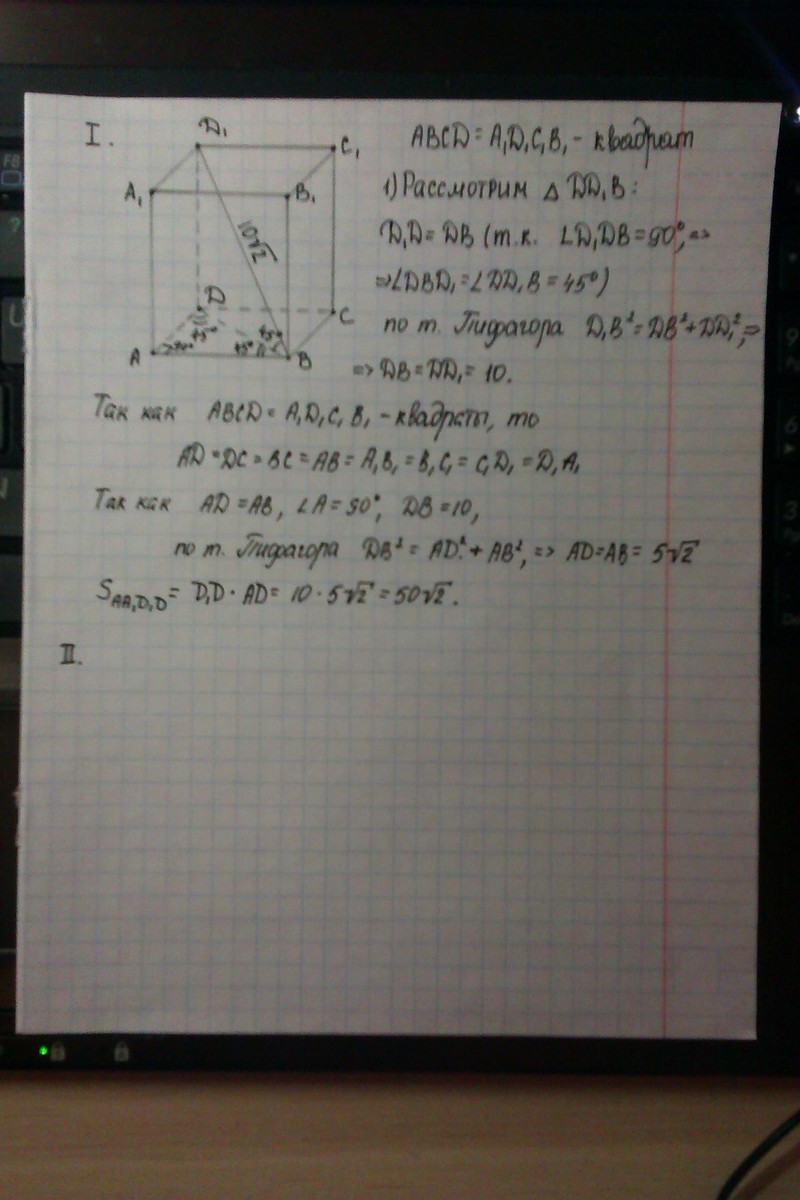 I.
D₁
C₁
A₁
B₁
10√2
D
C
45°
45°
45°
A
B
ABCD = A₁D₁C₁B₁ - квадрат
1) Рассмотрим △ DD₁B:
D₁D = DB (т.к. ∠D₁DB = 90°, =>
=> ∠DBD₁ = ∠DD₁B = 45°)
по т. Пифагора D₁B² = DB² + DD₁², =>
=> DB = DD₁ = 10.
Так как ABCD = A₁D₁C₁B₁ - квадраты, то
AD = DC = BC = AB = A₁B₁ = B₁C₁ = C₁D₁ = D₁A₁
Так как AD = AB, ∠A = 90°, DB = 10,
по т. Пифагора DB² = AD² + AB², => AD = AB = 5√2
S AA₁D₁D = D₁D · AD = 10 · 5√2 = 50√2.
II.
F8
?